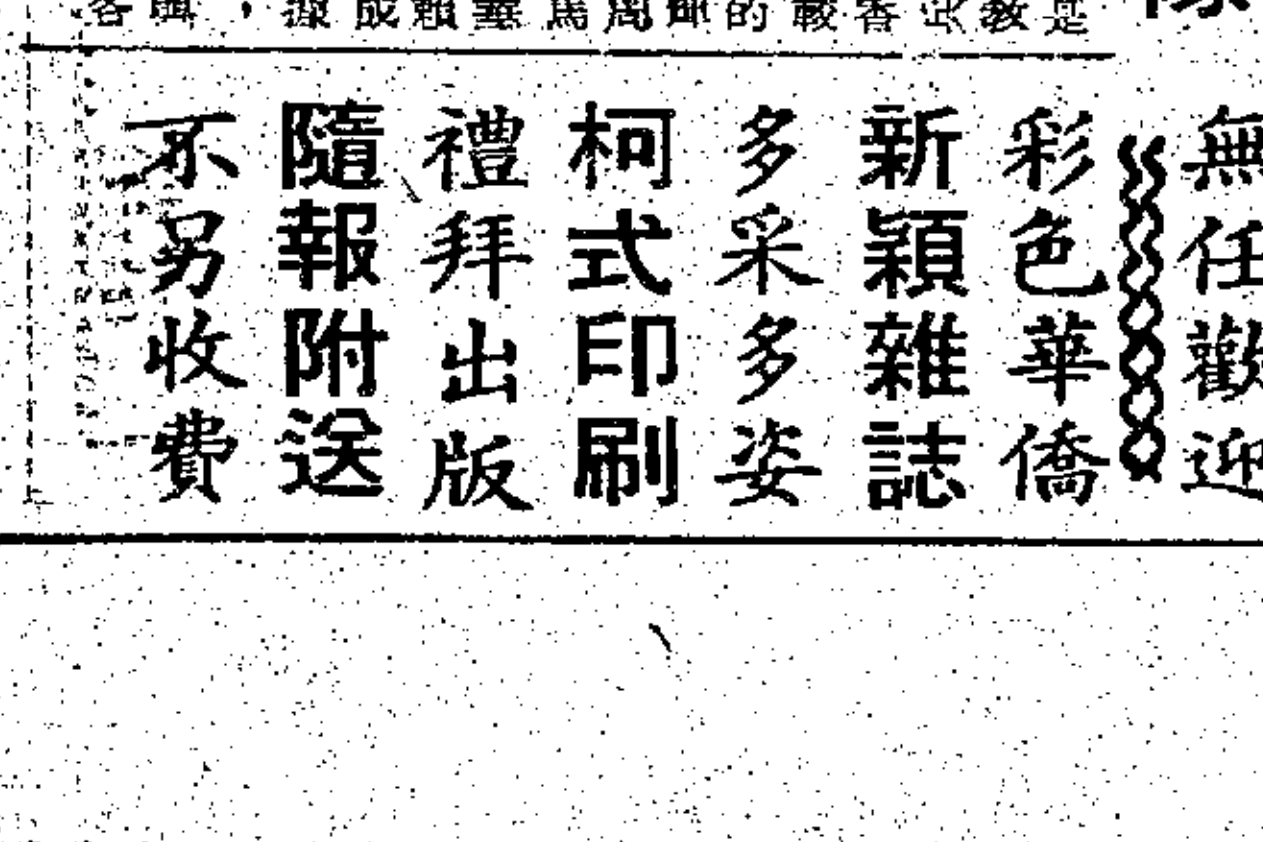 無任歡迎
彩色華僑
新穎雜誌
多采多姿
柯式印刷
禮拜出版
隨報附送
不另收費